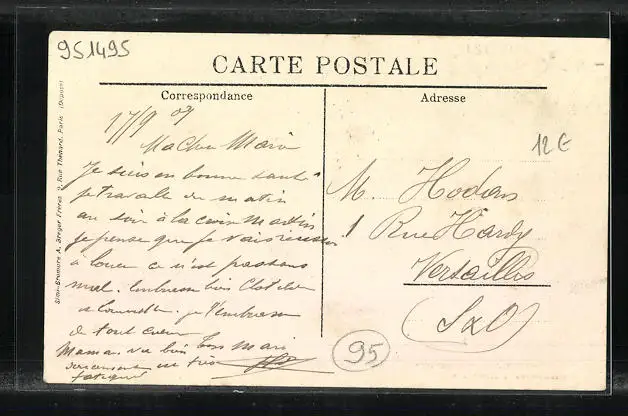 951495
CARTE POSTALE
Correspondance
Adresse
17/9 09
Ma Chère Marie
Je suis en bonne santé
je travaille du matin
au soir à la
je pense que je vais réussir
à louer ce n'est pas sans
mal. Embrasse bien Clotilde
je t'embrasse
de tout cœur
Ton Mari
Maman va bien
en très
fatigué
M. Hodans
1 Rue Hardy
Versailles
(S&O)
12€
95
Simi-Bromure A. Breger Frères 9, Rue Thénard, Paris (Déposé)